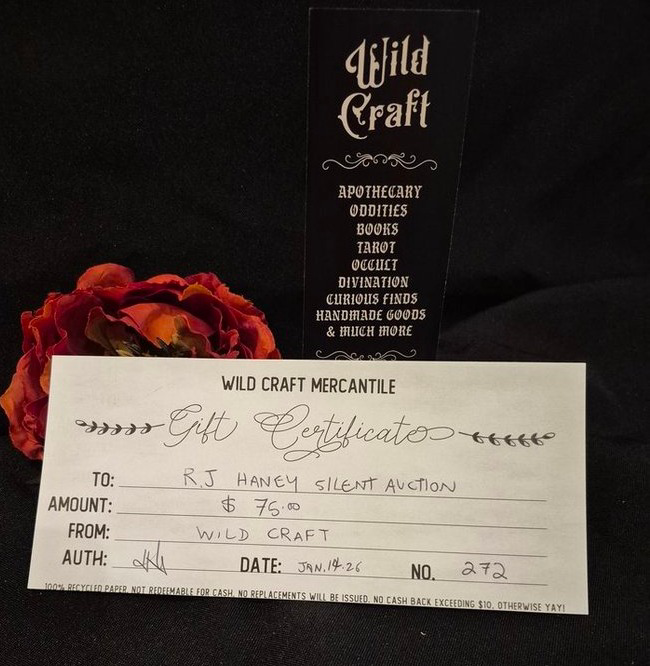 Wild
Craft
APOTHECARY
ODDITIES
BOOKS
TAROT
OCCULT
DIVINATION
CURIOUS FINDS
HANDMADE GOODS
& MUCH MORE
WILD CRAFT MERCANTILE
Gift Certificate
TO: R.J HANEY SILENT AUCTION
AMOUNT: $ 75.00
FROM: WILD CRAFT
AUTH: DATE: JAN.14.26 NO. 272
100% RECYCLED PAPER. NOT REDEEMABLE FOR CASH. NO REPLACEMENTS WILL BE ISSUED. NO CASH BACK EXCEEDING $10. OTHERWISE YAY!